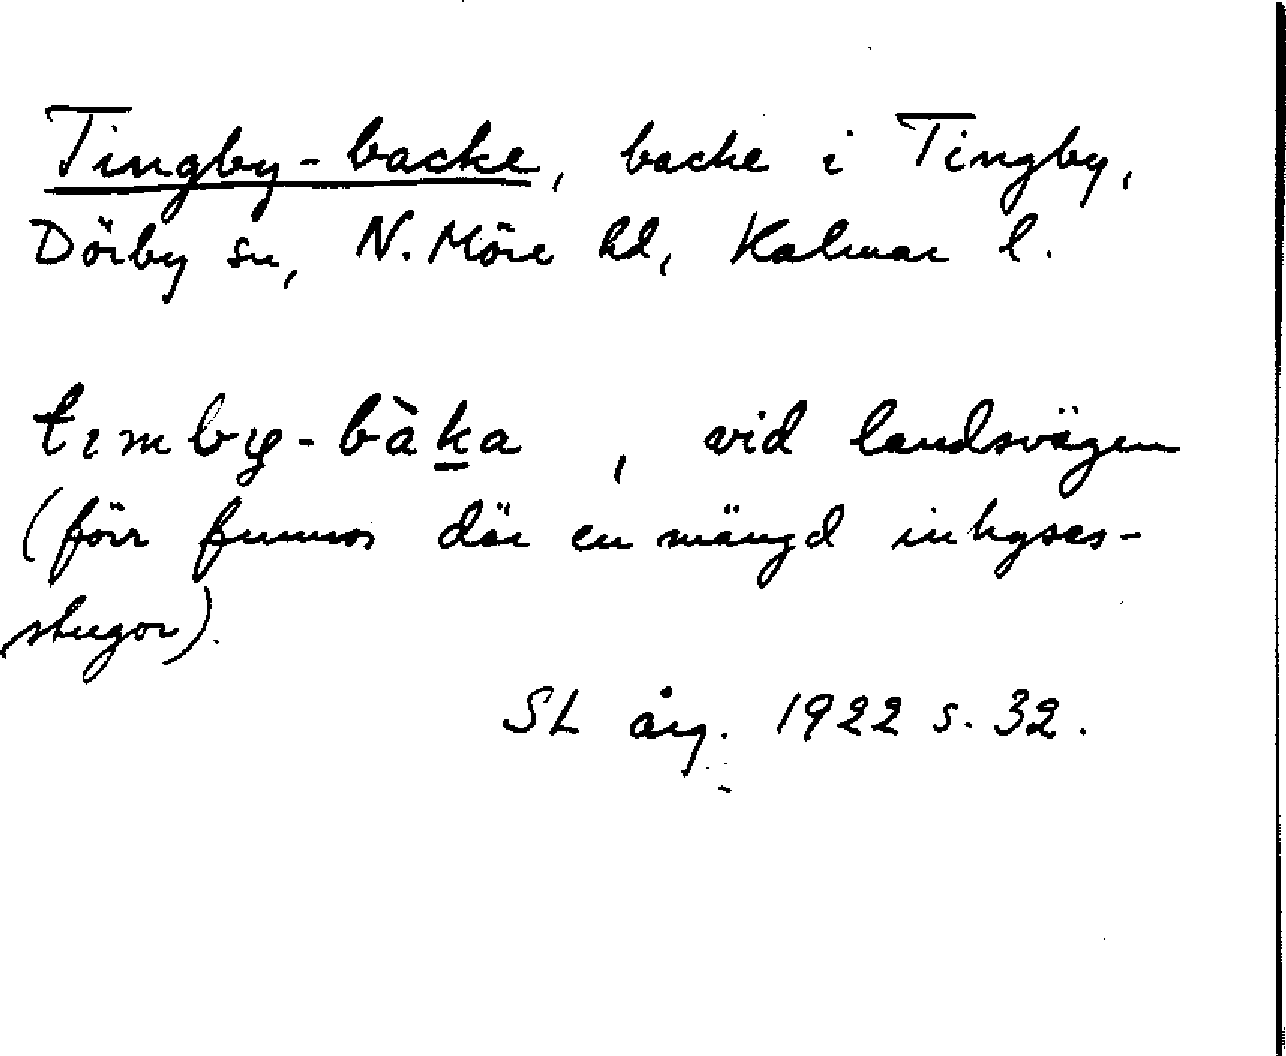 Tingby-backe, backe i Tingby,
Dörby sn, N. Möre hd, Kalmar l.
tımby-bàka, vid landsvägen
(förr funnos där en mängd inhyses-
stugor).
SL årg. 1922 s. 32.